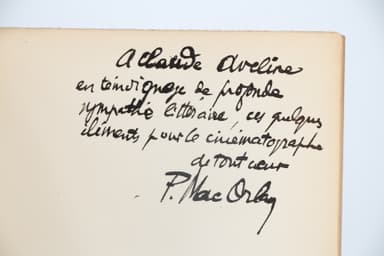 A Claude Aveline
en témoignage de profonde
sympathie littéraire, ces quelques
éléments pour le cinématographe
de tout cœur
P. Mac Orlan